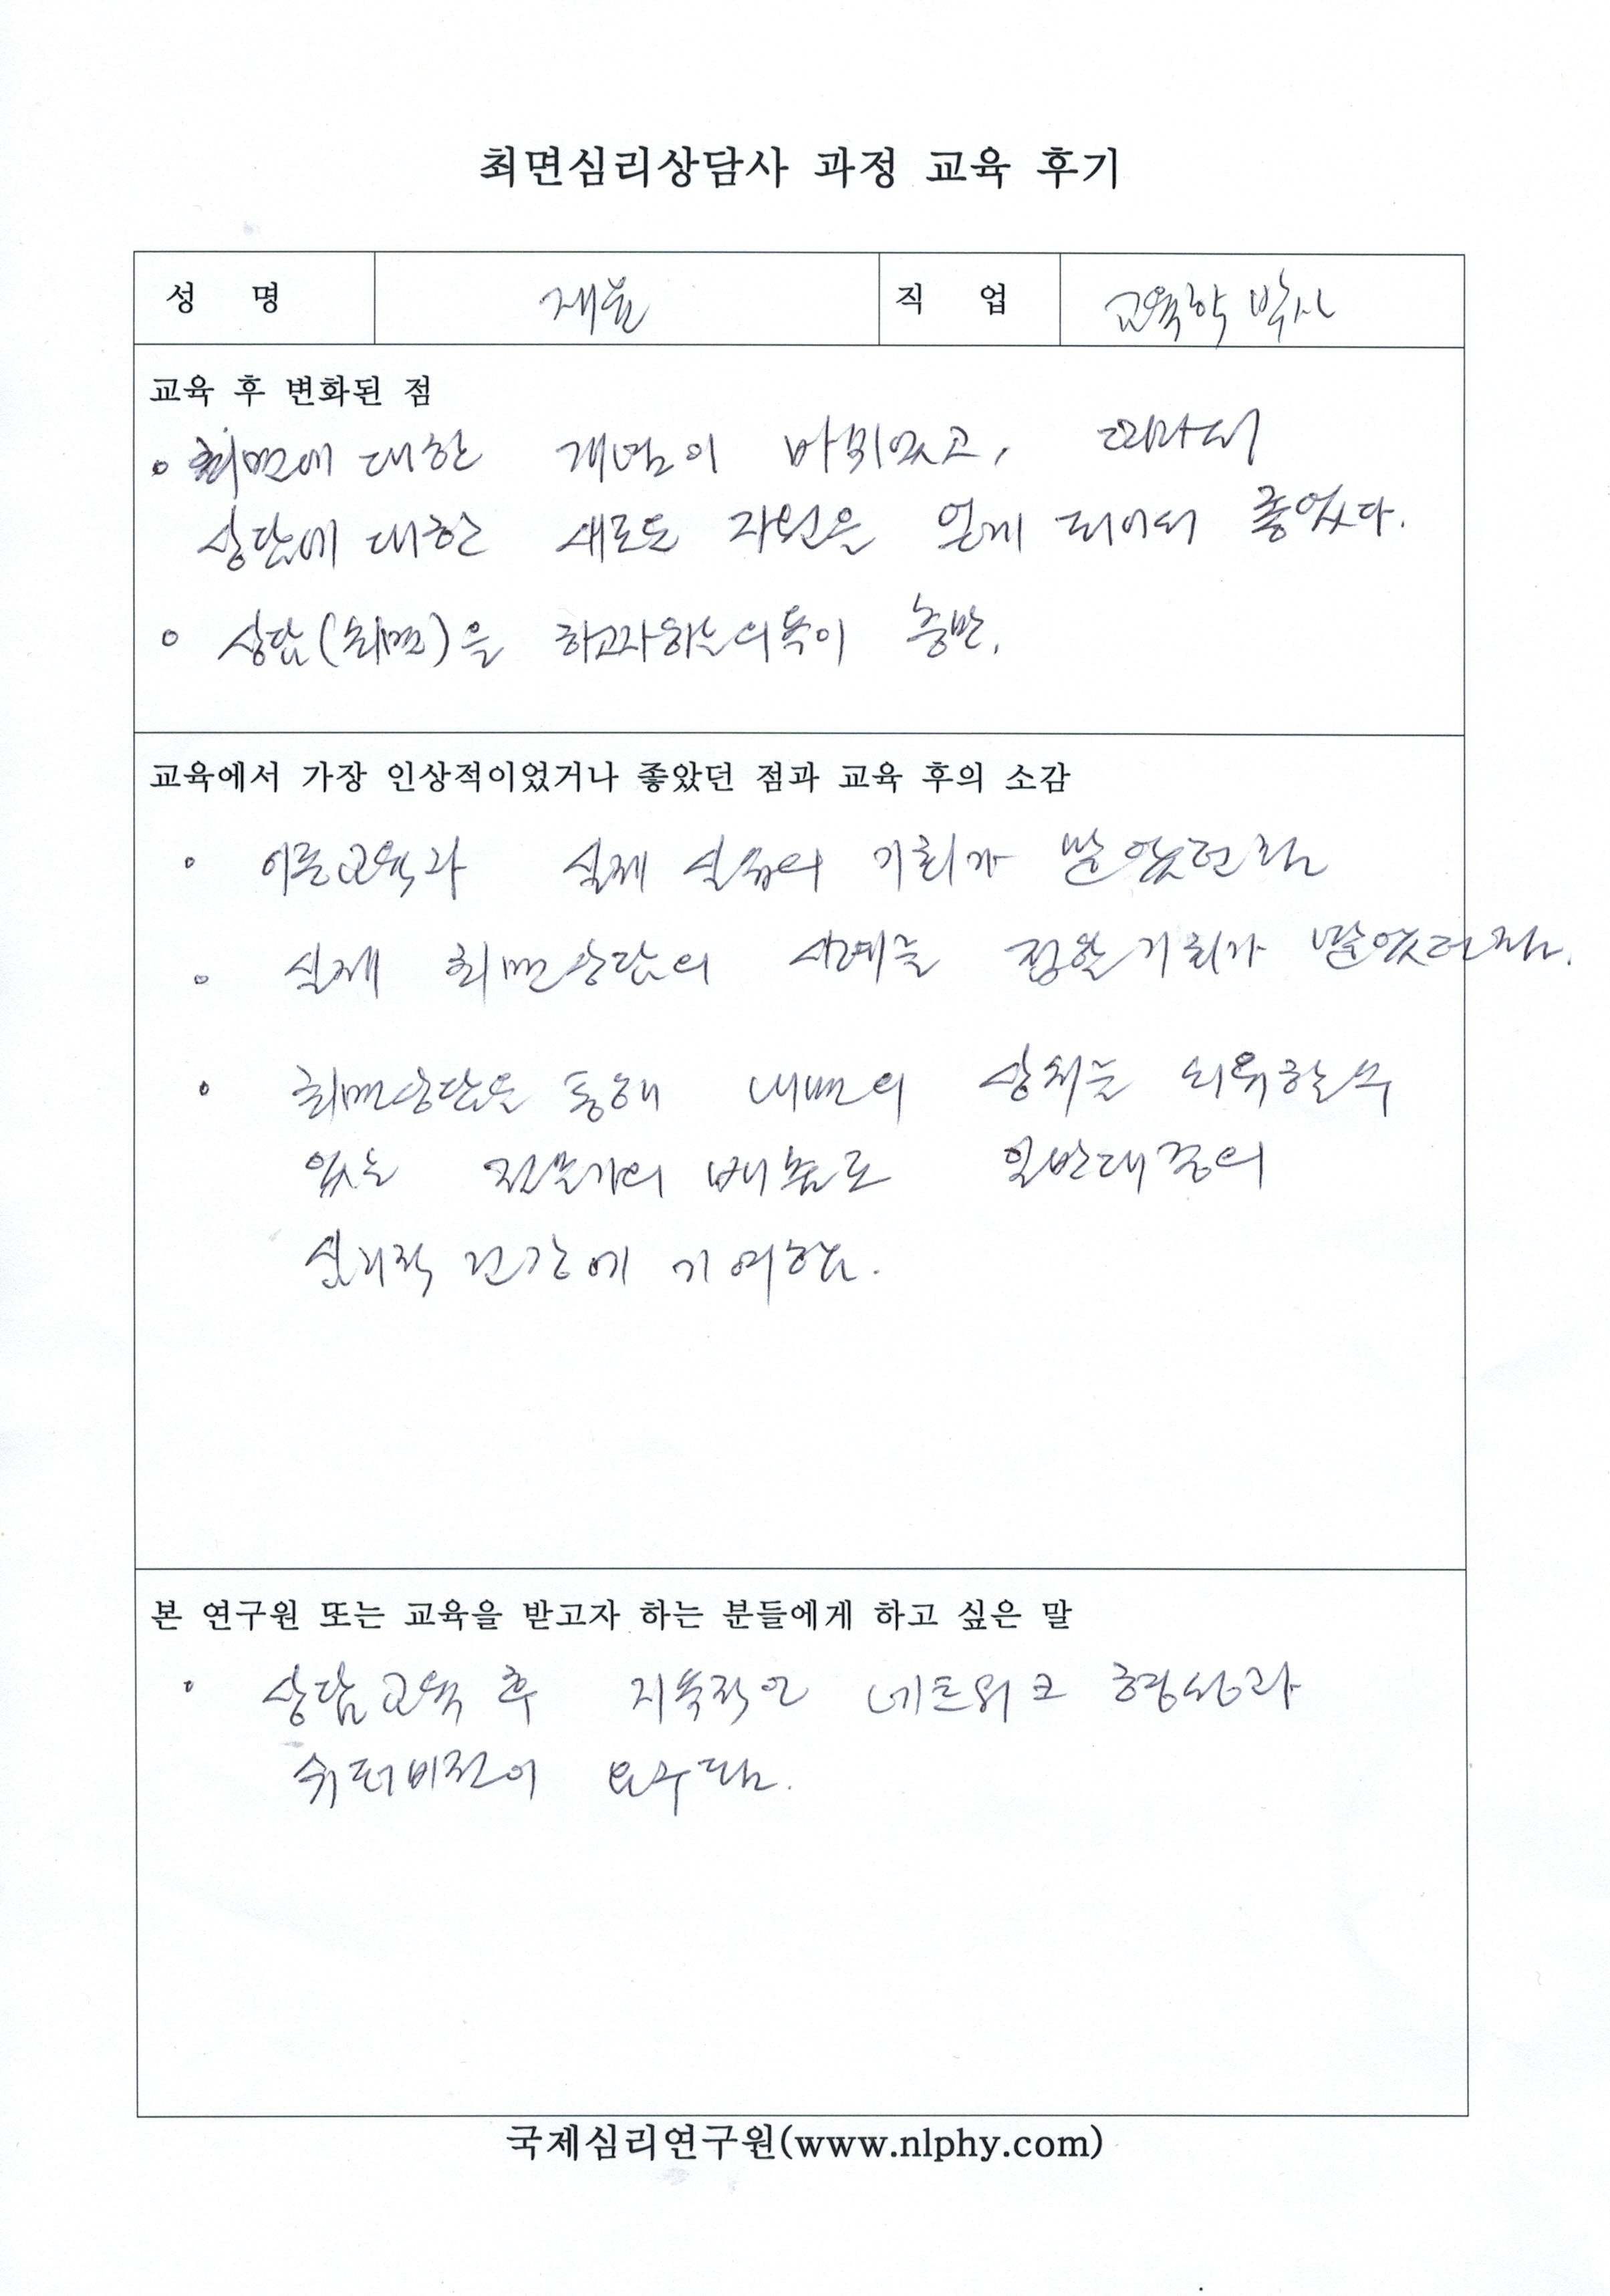 최면심리상담사 과정 교육 후기
성 명 직 업 교육학 박사
교육 후 변화된 점
최면에 대한 개념이 바뀌었고, 따라서
상담에 대한 새로운 자원을 얻게 되어서 좋았다.
상담(최면)을 하고자하는의욕이 충만.
교육에서 가장 인상적이었거나 좋았던 점과 교육 후의 소감
이론교육과 실제 실습의 기회가 많았던점
실제 최면상담의 사례를 접할기회가 많았던점.
최면상담을 통해 내면의 상처를 치유할수
있는 전문가의 배출로 일반대중의
심리적 건강에 기여함.
본 연구원 또는 교육을 받고자 하는 분들에게 하고 싶은 말
상담교육 후 지속적인 네트워크 형성과
슈퍼비전이 요구됨.
국제심리연구원(www.nlphy.com)